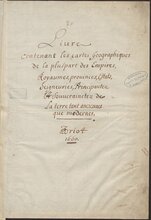 Livre
contenant les cartes Geographiques
de la pluspart des Empires,
Royaumes, provinces, Estats,
Seigneuries, Principautez
et souverainetez de
la terre tant anciennes
que modernes.
Briot